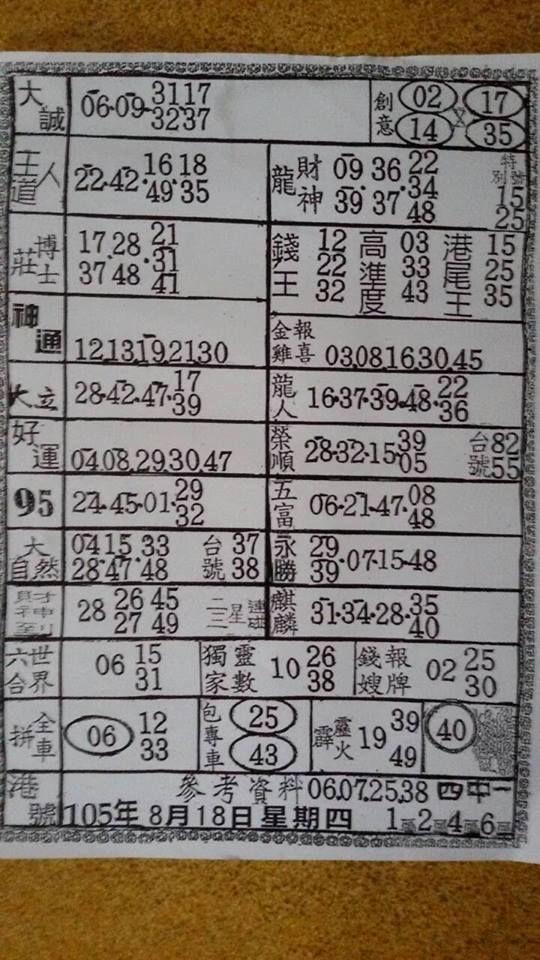 大誠 06-09-31 17 32 37
創意 02 17 14 35
王道人 22.42.16 18 49.35
龍 財神 09 36 22 39 37 34 48 特別號 15 25
莊博士 17 28 21 37 48 31 41
錢王 12 22 32 高準度 03 33 43 港尾王 15 25 35
神通 12,13,19,21,30
金雞報喜 03,08,16,30,45
大立 28-42-47-17 39
龍人 16-37-39-48-22 36
好運 04,08,29,30,47
榮順 28-32-15-39 05 台號 82 55
95 24-45-01-29 32
五富 06-21-47-08 48
大自然 04 15 33 28 47 48 台號 37 38
永勝 29 39-07-15-48
財神到 28 26 45 27 49 二三星連碰
麒麟 31-34-28-35 40
六合世界 06 15 31
獨家靈數 10 26 38
錢嫂報牌 02 25 30
全車拼 06 12 33
包專車 25 43
霹靂火 19 39 49
40
港號 參考資料 06,07,25,38 四中一
105年 8月18日 星期四 1 2 4 6